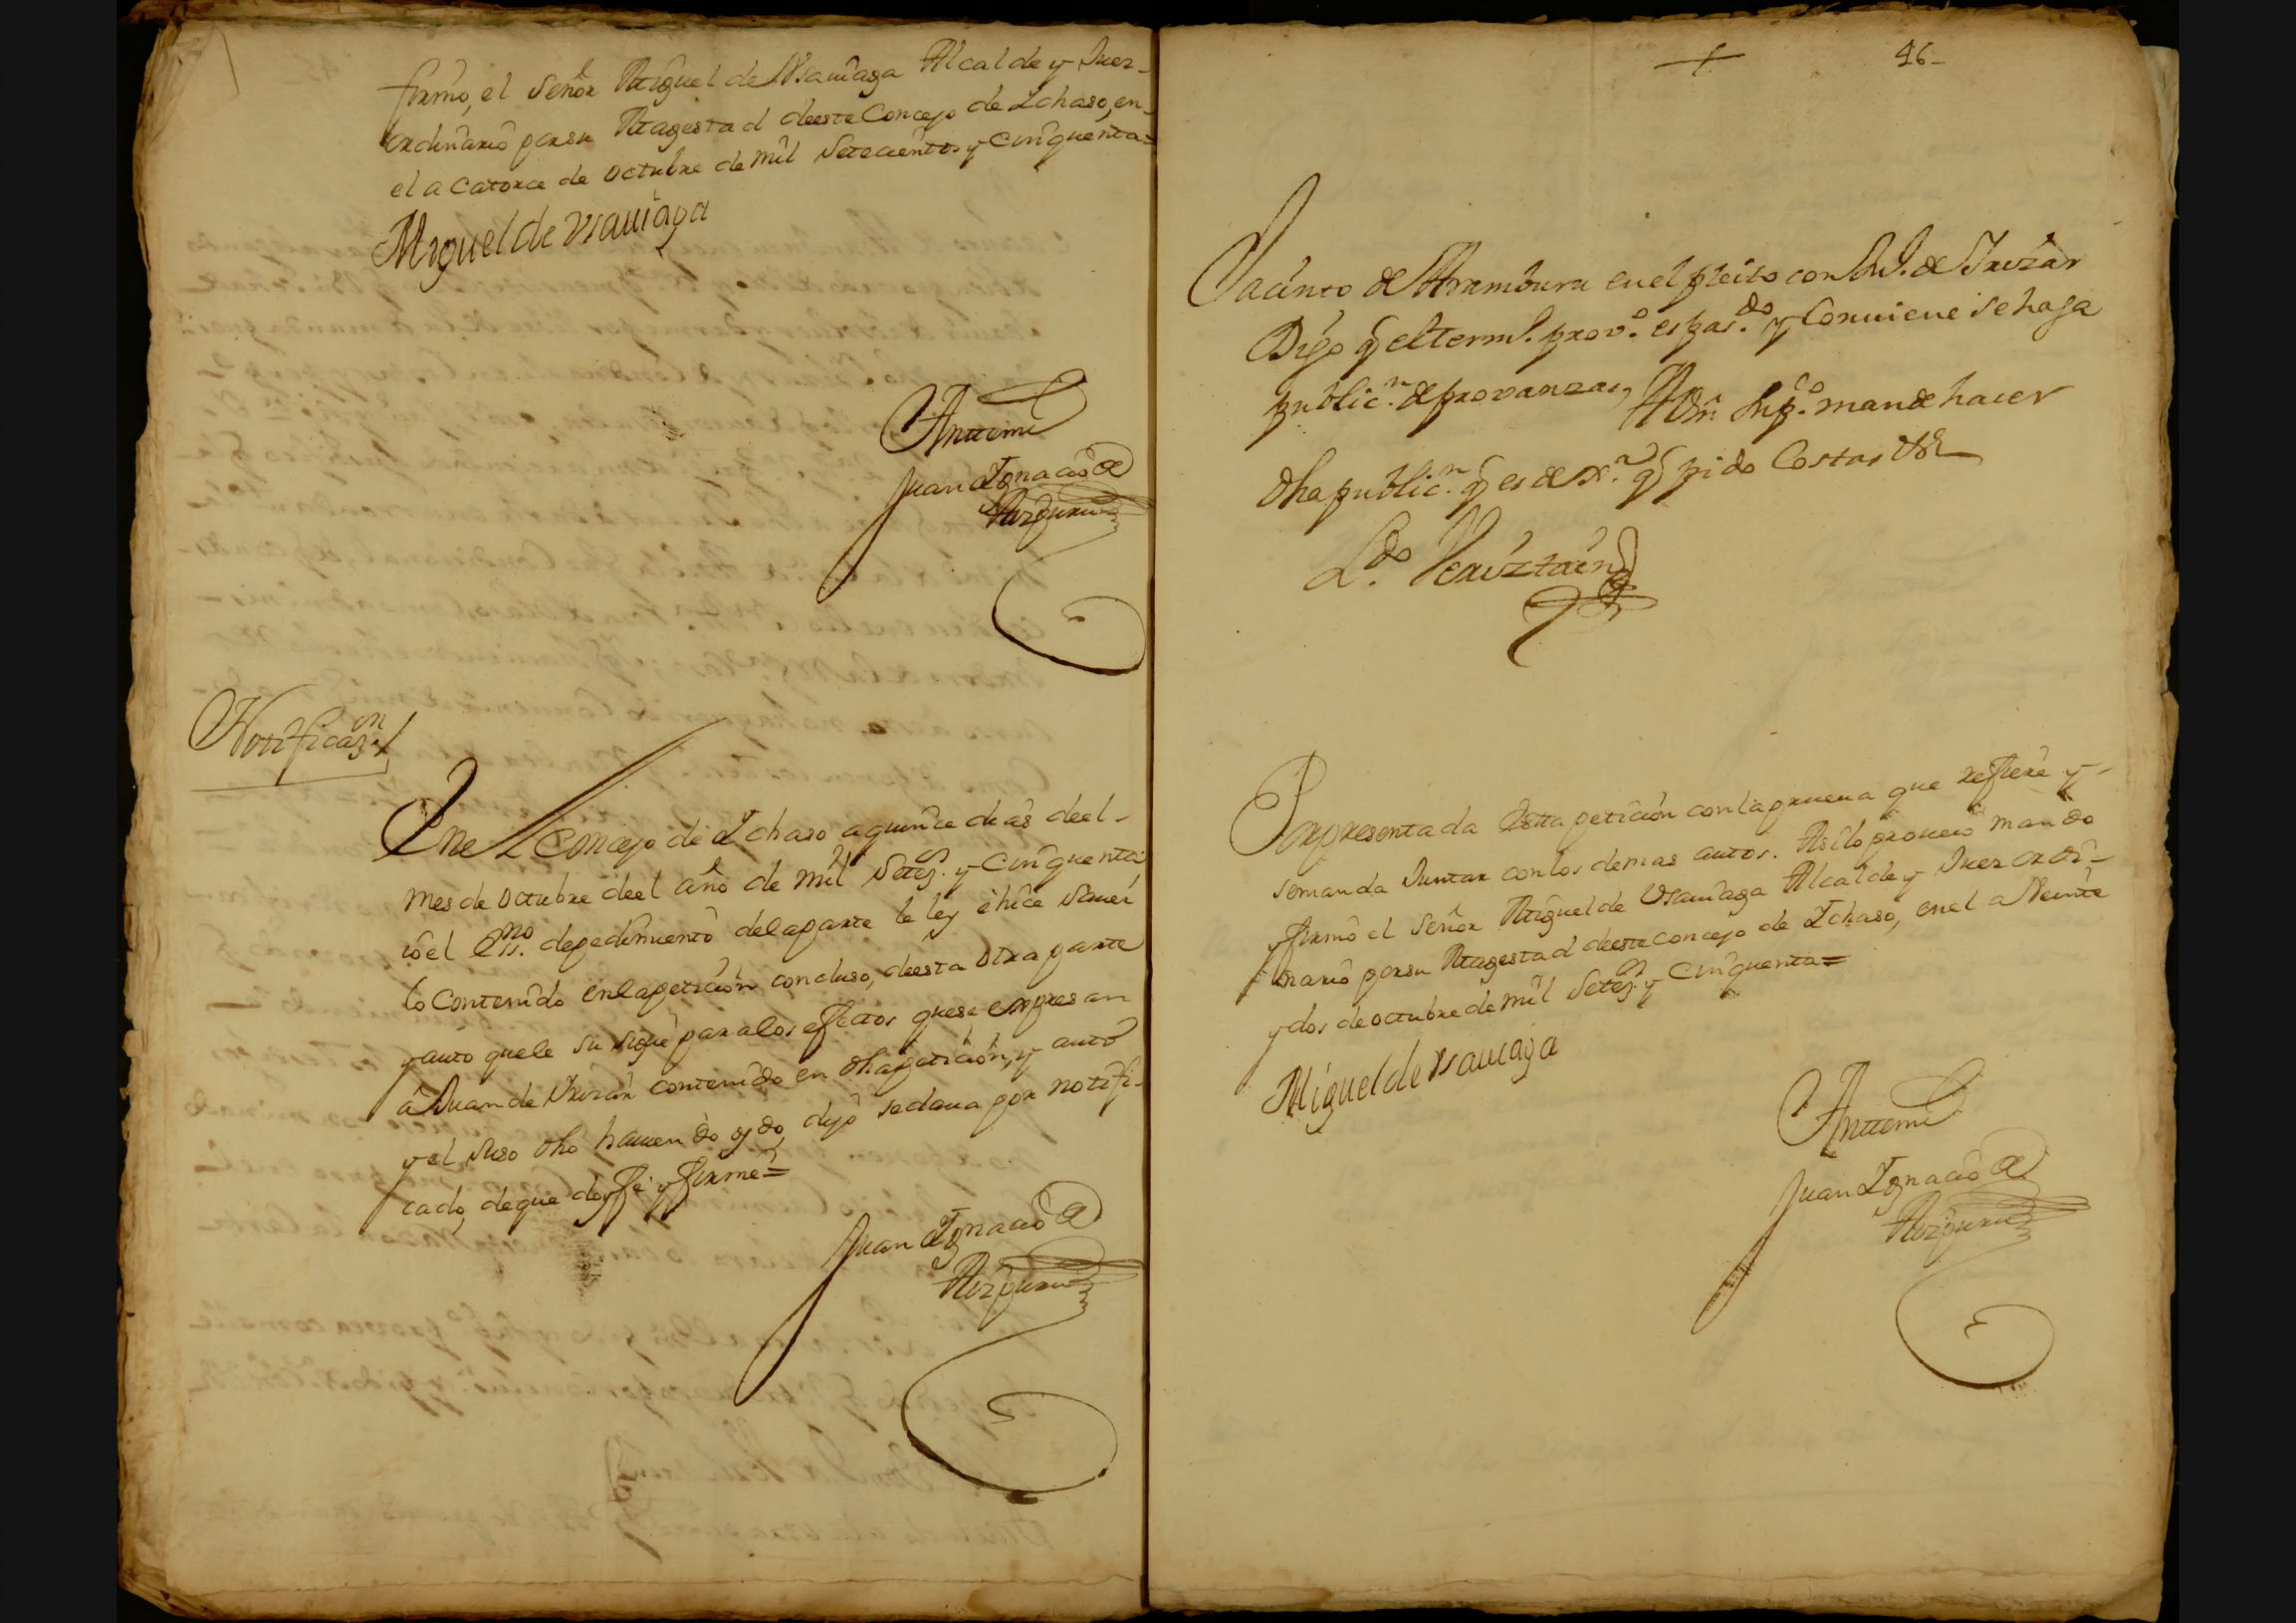 firmo, el Señor Miguel de Usauiaga Alcalde y Juez
ordinario por su Magestad deeste Concejo de Ichaso, en
el a Catorce de octubre de mil Setecientos y Cinquenta=
Miguel de Usauiaga
Anttemi
Juan Ignacio de
Aizpuru
Notificaz.on
En el Concejo de Ichaso a quince dias deel
mes de octubre deel año de mil Setez.s y Cinquenta
io el Ess.no depedimiento dela parte le ley è hice Sauer
lo Contenido enla petizion concluso, deesta otra parte
y auto quele su sigue para los effectos que se expresan
á Juan de Yruzar contenido en dha petición, y auto
y el suso dho hauiendo oydo, dijo sedaua por notifi-
cado, de que doy ffé y firmé=
Juan Ignacio de
Aizpuru
46-
Jacinto de Aramburu en el pleito con Ju. de Yruzar
Digo q el term. prov.o es pas.do y Conuiene se haga
public.n de provanzas, A Vm Sup.co mande hacer
dha public.n q es de x.a q pido Costas V.a
L.do Veruztáin
Por presentada Estta petición con la prueua que refiere y-
se manda Juntar con los demas autos. Asi lo proueió mando
y firmó el Señor Miguel de Usauiaga Alcalde y Juez ordi-
nario por su Magestad deeste concejo de Ichaso, en el a Veinte
y dos de octubre de mil Setez.s y Cinquenta=
Miguel de Usauiaga
Anttemi
Juan Ignacio de
Aizpuru